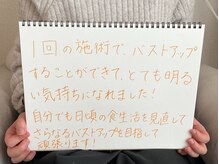 1回の施術で、バストアップ
することができて、とても明る
い気持ちになれました！
自分でも日頃の食生活を見直して
さらなるバストアップを目指して
頑張ります！